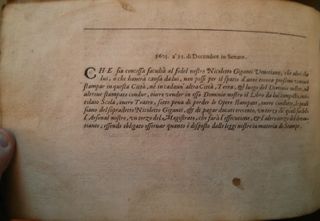 1605. a' 31. di Decembre in Senato.
CHE sia concessa facultà al fedel nostro Nicoletto Giganti Venetiano, che altri che
lui, o chi haverà causa da lui, non possi per il spatio d'anni trenta prossimi venturi
stampar in questa Città, nè in cadaun' altra Città, Terra, & luogo del Dominio nostro, nè
altrove stampato condur, overo vender in esso Dominio nostro il Libro da lui composto, inti-
tolato Scola, overo Teatro, sotto pena di perder le Opere stampate, overo condutte, le quali
siano del sopradetto Nicoletto Giganti, & di pagar ducati trecento, un terzo de quali sia dell'
Arsenal nostro, un terzo del Magistrato, che farà l'essecutione, & l'altro terzo del denon-
tiante, essendo obligato osservar quanto è disposto dalle leggi nostre in materia de Stampe.